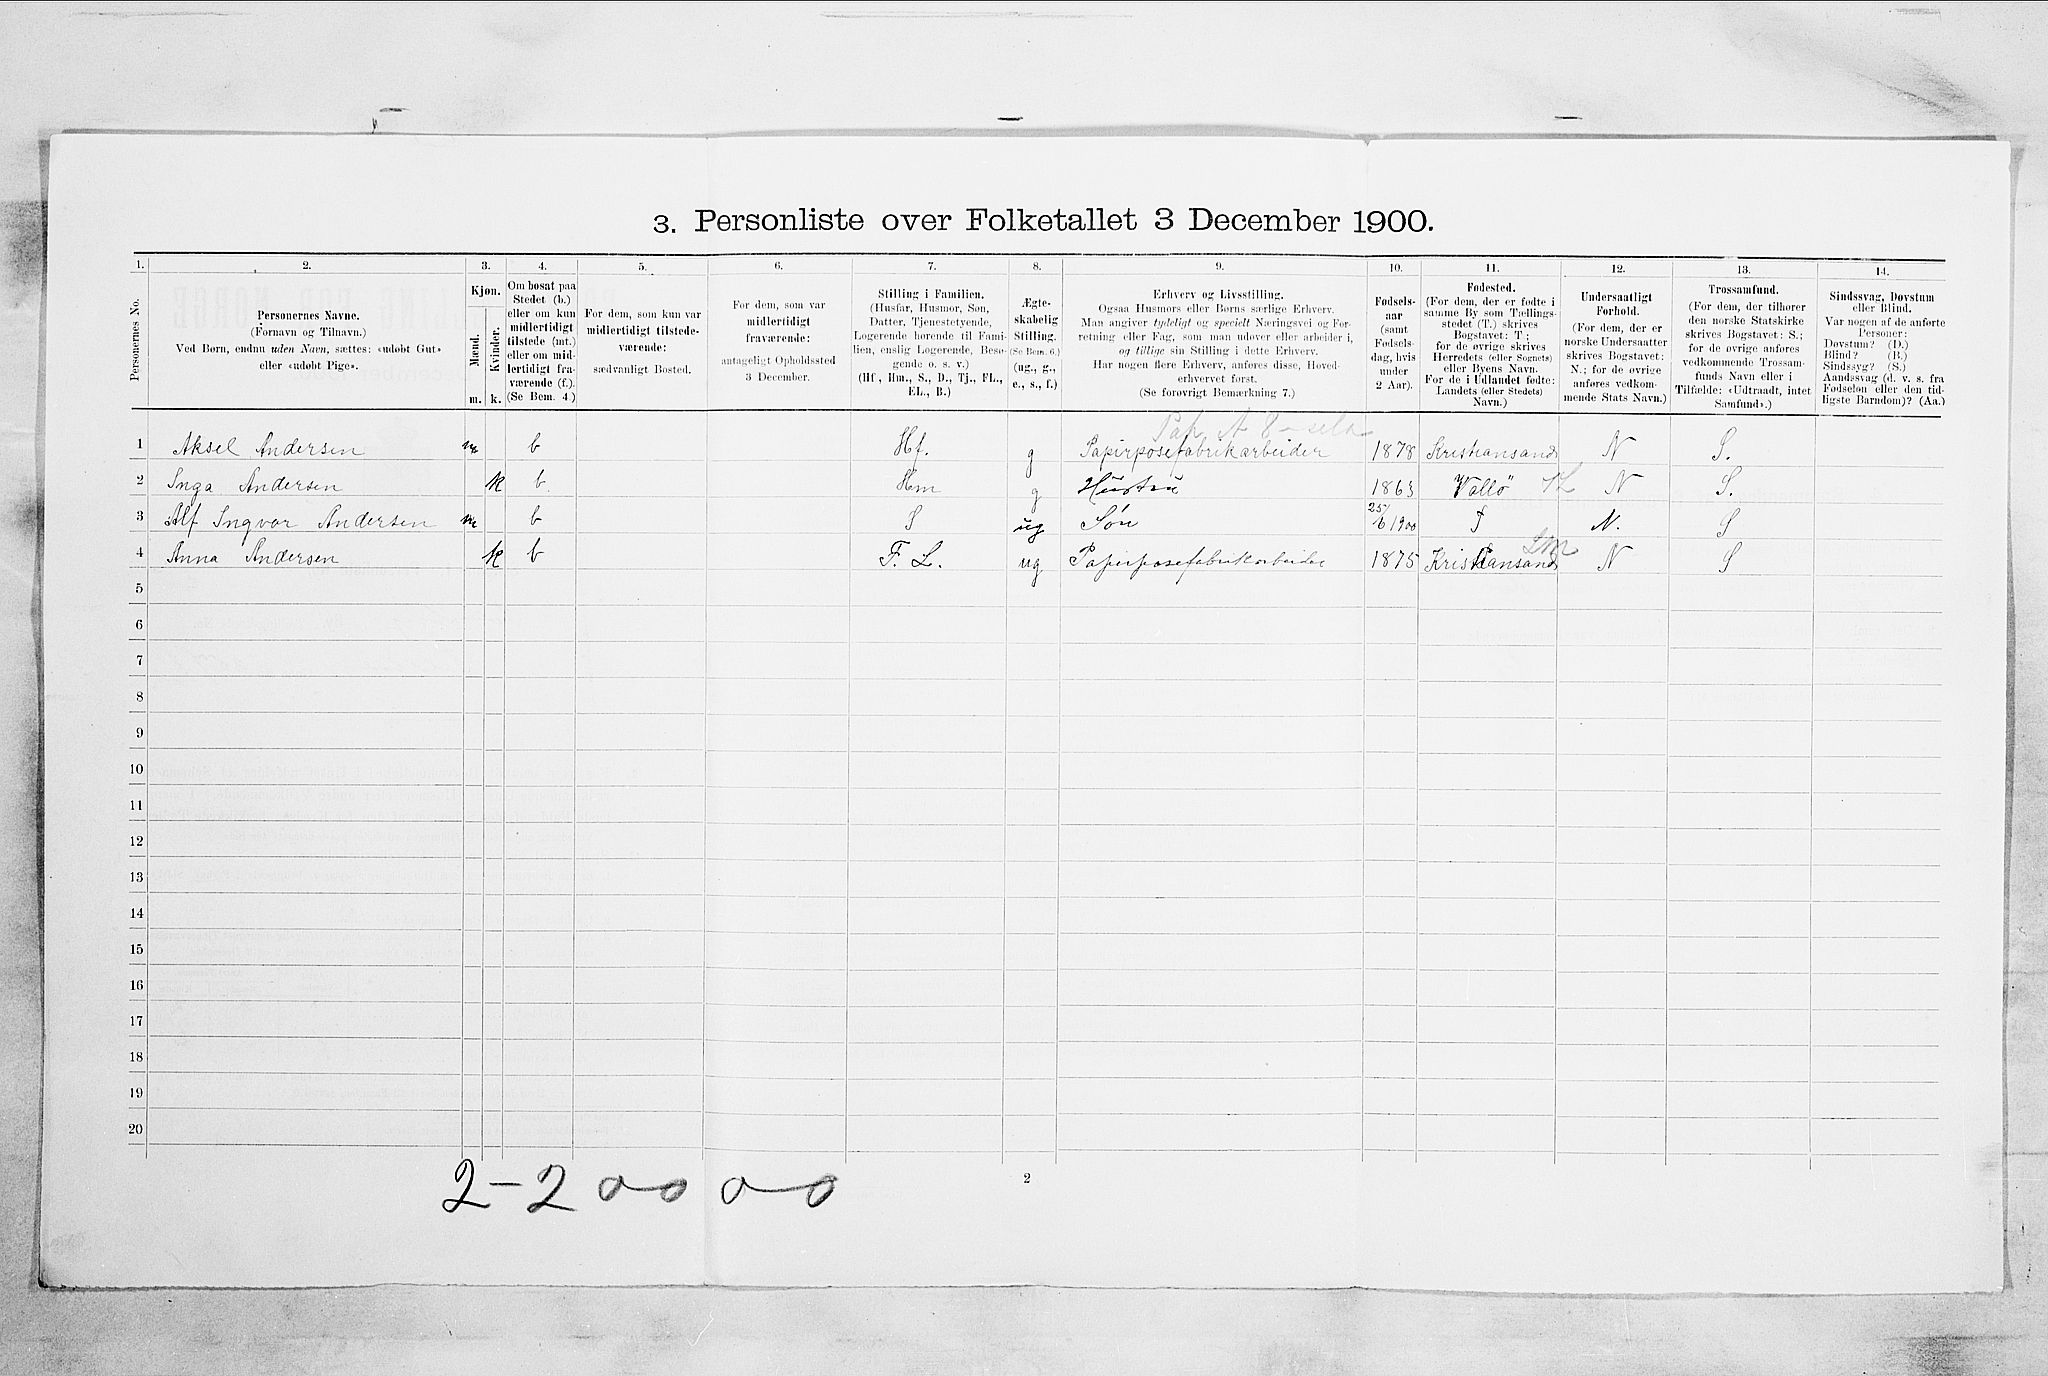 3. Personliste over Folketallet 3 December 1900.
1. 2. 3. 4. 5. 6. 7. 8. 9. 10. 11. 12. 13. 14.
Personernes No.
Personernes Navne.
(Fornavn og Tilnavn.)
Ved Børn, endnu uden Navn, sættes: «udøbt Gut»
eller «udøbt Pige».
Kjøn.
Mænd.
Kvinder.
m. k.
Om bosat paa
Stedet (b.)
eller om kun
midlertidigt
tilstede (mt.)
eller om mid-
lertidigt fra-
værende (f.).
(Se Bem. 4.)
For dem, som kun var
midlertidigt tilstede-
værende:
sædvanligt Bosted.
For dem, som var
midlertidigt
fraværende:
antageligt Opholdssted
3 December.
Stilling i Familien.
(Husfar, Husmor, Søn,
Datter, Tjenestetyende,
Logerende hørende til Fami-
lien, enslig Logerende, Besø-
gende o. s. v.)
(Hf., Hm., S., D., Tj., FL.,
EL., B.)
Ægte-
skabelig
Stilling.
(Se Bem. 6.)
(ug., g.,
e., s., f.)
Erhverv og Livsstilling.
Ogsaa Husmors eller Børns særlige Erhverv.
Man angiver tydeligt og specielt Næringsvei og For-
retning eller Fag, som man udøver eller arbeider i,
og tillige sin Stilling i dette Erhverv.
Har nogen flere Erhverv, anføres disse, Hoved-
erhvervet først.
(Se forøvrigt Bemærkning 7.)
Fødsels-
aar
(samt
Fødsels-
dag, hvis
under
2 Aar).
Fødested.
(For dem, der er fødte i
samme By som Tællings-
stedet (T.) skrives
Bogstavet: T;
for de øvrige skrives
Herredets (eller Sognets)
eller Byens Navn.
For de i Udlandet fødte:
Landets (eller Stedets)
Navn.)
Undersaatligt
Forhold.
(For dem, der er
norske Undersaatter
skrives Bogstavet:
N.; for de øvrige
anføres vedkom-
mende Stats Navn.)
Trossamfund.
(For dem, der tilhører
den norske Statskirke
skrives Bogstavet: S.;
for de øvrige anføres
vedkommende Trossam-
funds Navn eller i
Tilfælde: «Udtraadt, intet
Samfund».)
Sindssvag, Døvstum
eller Blind.
Var nogen af de anførte
Personer:
Døvstum? (D.)
Blind? (B.)
Sindssyg? (S.)
Aandssvag (d. v. s. fra
Fødselen eller den tid-
ligste Barndom)? (Aa.)
1 Aksel Andersen m b Hf. g Papirposefabrikarbeider 1878 Kristiansand N S.
2 Inga Andersen k b. Hm g Hustru 1863 Vallö N S.
3 Alf Ingvar Andersen m b S ug Sön 25/6 1900 T N. S
4 Anna Andersen k b F. L. ug. Papirposefabrikarbeider 1875 Kristiansand N S
5
6
7
8
9
10
11
12
13
14
15
16
17
18
19
20
2-2 00 00
2